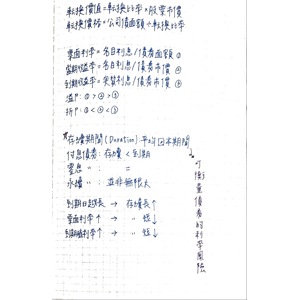 轉換價值=轉換比率×股票市價
轉換價格=公司債面額÷轉換比率
票面利率=名目利息/債券面額①
當期收益率=名目利息/債券市價②
到期收益率=實質利息/債券市價③
溢P:①>②>③
折P:①<②<③
*存續期間(Duration):平均回本期間
付息債券:存續<到期
零息〃:〃=〃
永續〃:並非無限大
到期日越長→存續長↑
票面利率↑→〃短↓
到期殖利率↑→〃短↓
可衡量債券的利率風險